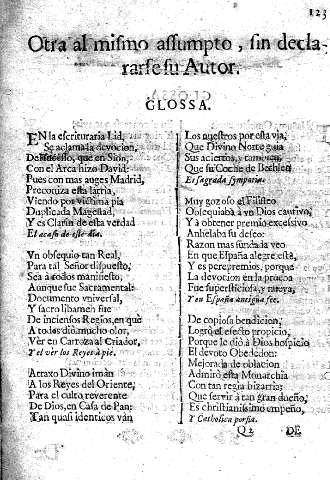 123
Otra al mismo assumpto, sin decla-
rarse su Autor.
GLOSSA.
EN la escrituraria Lid,
Se aclama la devocion,
Del sucesso, que en Sion,
Con el Arca hizo David:
Pues con mas auges Madrid,
Preconiza esta latria,
Viendo por victima pia
Duplicada Magestad,
Y es Clarin de esta verdad
El acaso de este dia.
Vn obsequio tan Real,
Para tal Señor dispuesto,
Sea à todos manifiesto,
Aunque fue Sacramental:
Documento vniversal,
Y sacro libamen fue
De inciensos Regios, en que
A todos diò mucho olor,
Vèr en Carroza al Criador,
Y el vèr los Reyes à pie.
Atraxo Divino imàn
A los Reyes del Oriente,
Para el culto reverente
De Dios, en Casa de Pan:
Tan quasi identicos vàn
Los nuestros por esta via,
Que Divino Norte guia
Sus aciertos, y
Que su Coche de Bethlen
Es sagrada sympatia.
Muy gozoso el Filisteo
Obsequiaba à vn Dios cautivo,
Y à obtener premio excessivo
Anhelaba su deseo:
Razon mas fundada veo
En que España alegre estè,
Y es perepremios, porque
La devocion en la prueba
Fue supersticiosa, y nueva,
Y en España antigua fee.
De copiosa bendicion,
Logrò el efecto propicio,
Porque le diò à Dios hospicio
El devoto Obededon:
Mejorada de oblacion
Admirò esta Monarchia
Con tan regia bizarria;
Que servir à tan gran dueño,
Es christianissimo empeño,
Y Catholica porfia.
Q2
DE